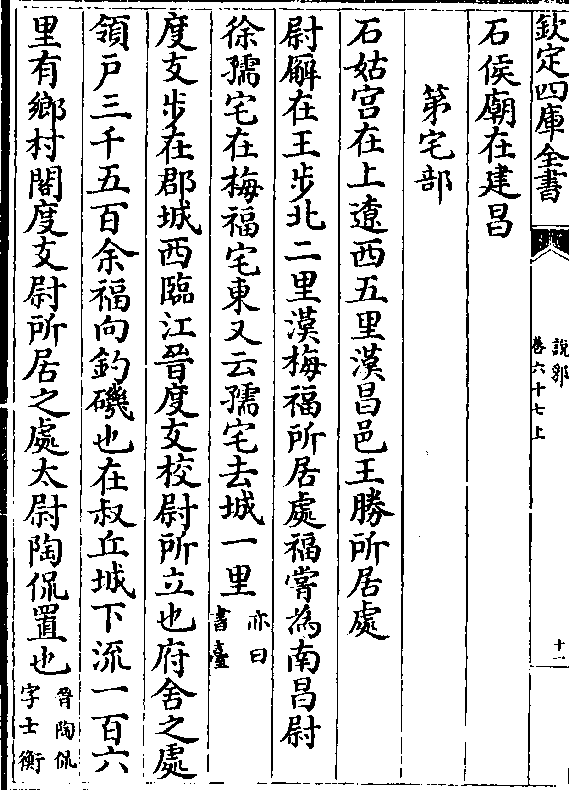 欽定四庫全書
說郛
卷六十七上
十一
石侯廟在建昌
第宅部
石姑宫在上遼西五里漢昌邑王勝所居處
尉廨在王步北二里漢梅福所居處福嘗為南昌尉
徐孺宅在梅福宅東又云孺宅去城一里亦曰書臺
度支步在郡城西臨江晉度支校尉所立也府舍之處
領戶三千五百余福向釣磯也在叔丘城下流一百六
里有鄉村閣度支尉所居之處太尉陶侃置也晉陶侃字士衡